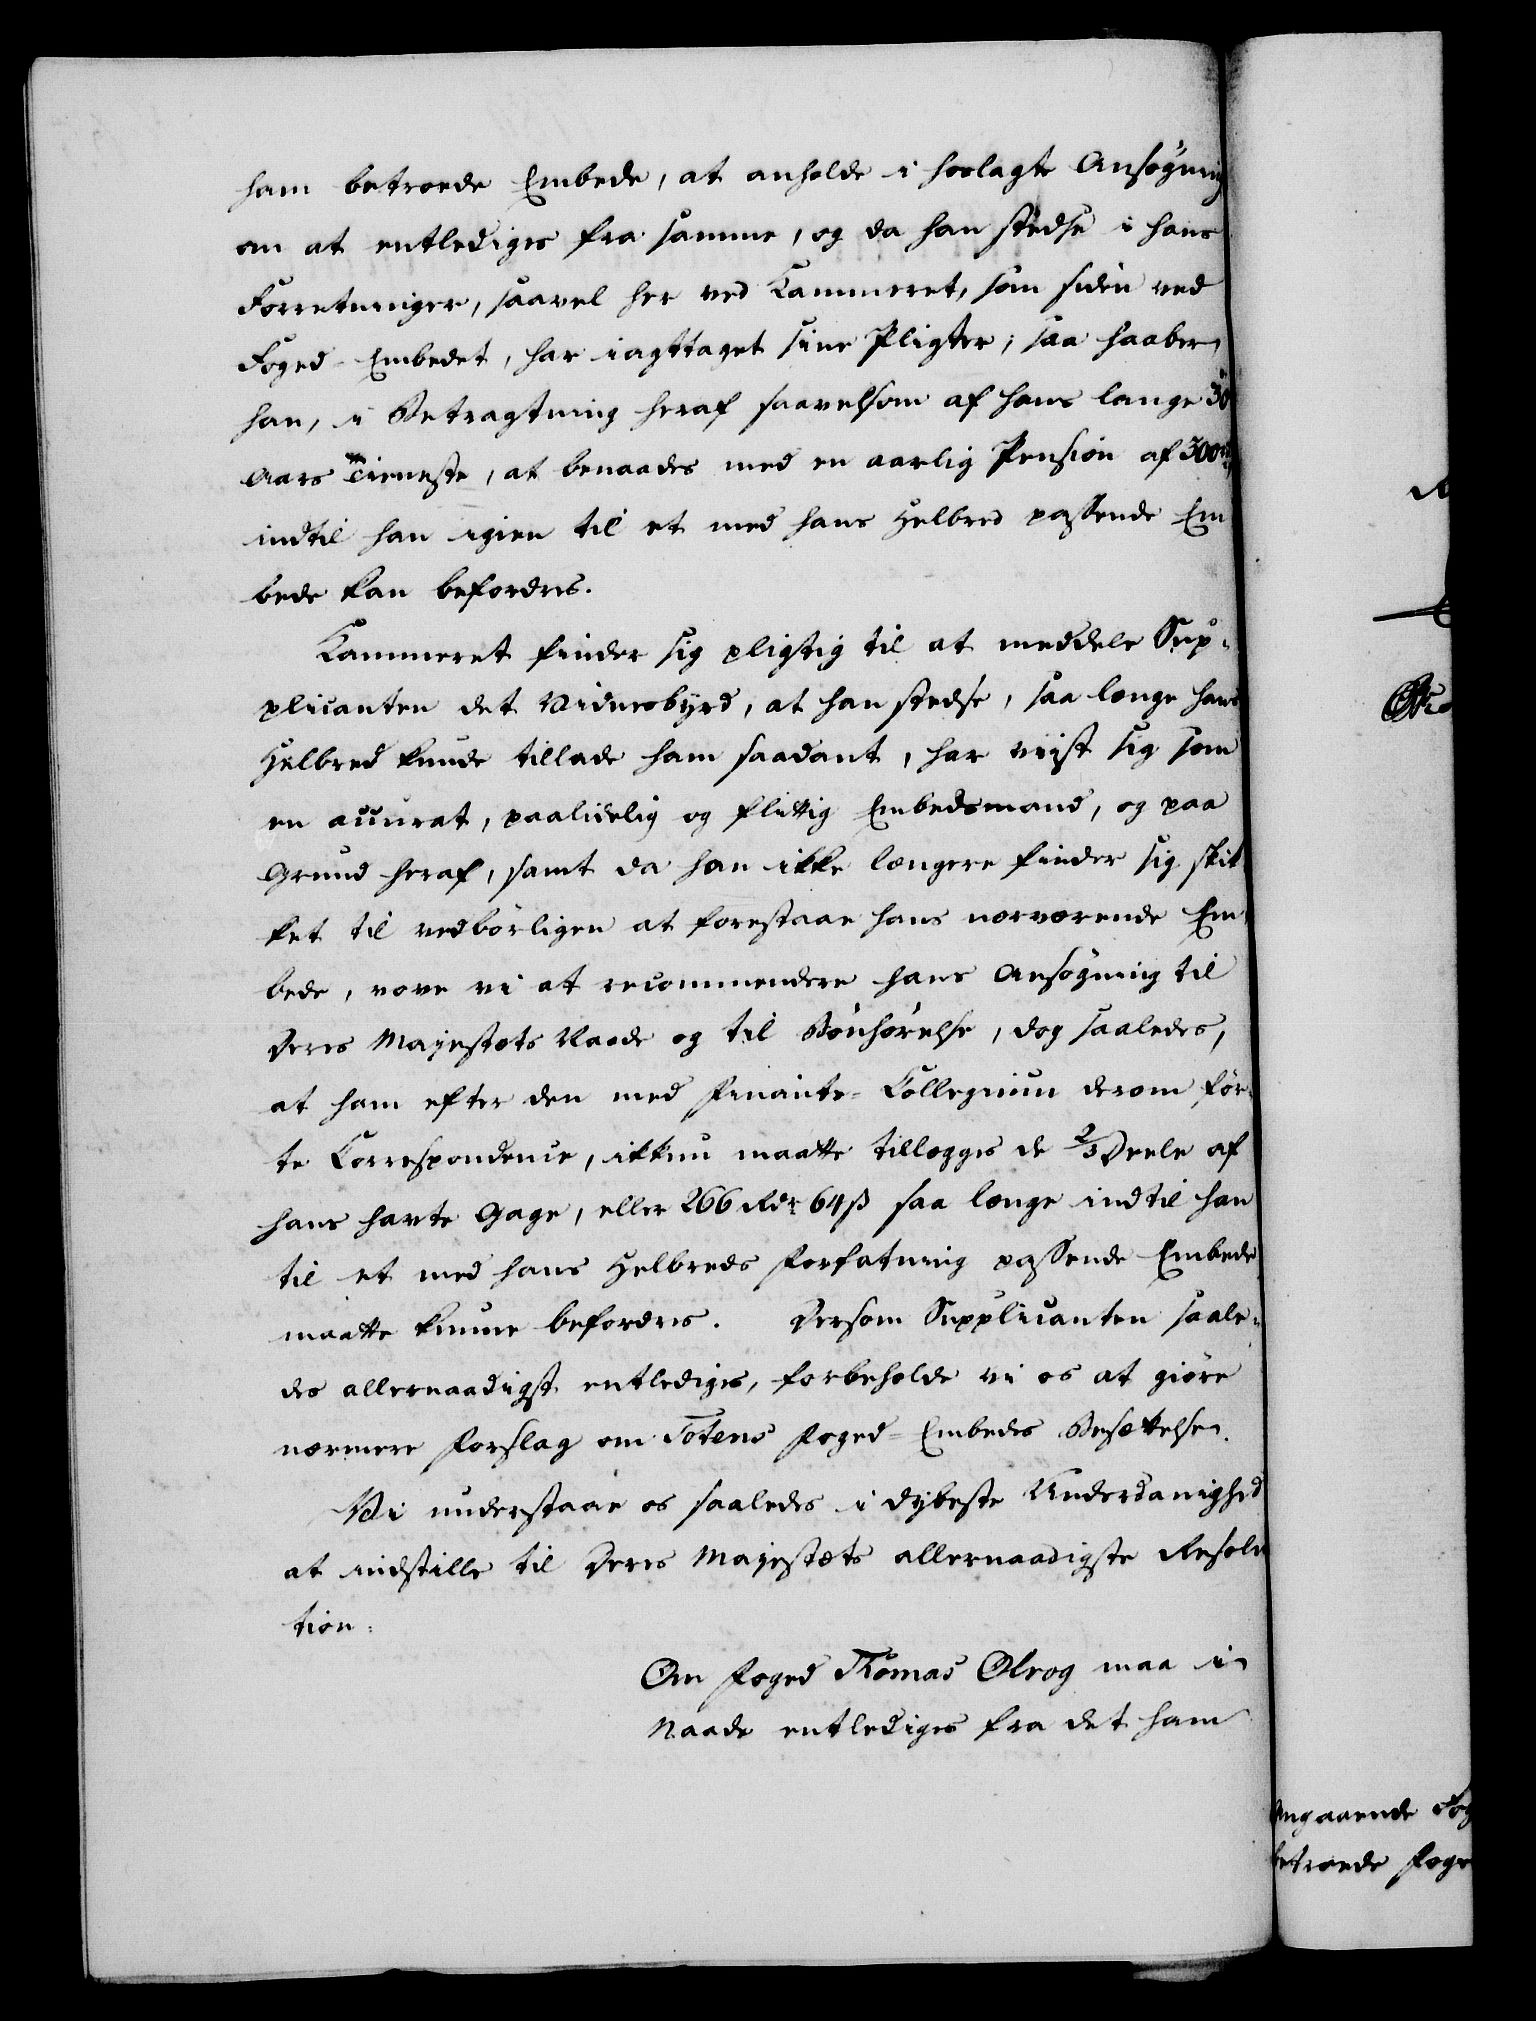 ham betroede Embede, at anholde i hoslagte Ansøgning
om at entlediges fra samme, og da han stedse i hans
Forretninger, saavel her ved Kammeret, som siden ved
Foged-Embedet, har iagttaget sine Pligter; saa haaber
han, i Betragtning heraf saavelsom af hans lange 30
Aars Tieneste, at benaades med en aarlig Pension af 300 rd
indtil han igien til et med hans Helbred passende Em
bede kan befordres.
Kammeret finder sig pligtig til at meddele Sup-
plicanten det Vidnesbyrd, at han stedse, saa længe hans
Helbred kunde tillade ham saadant, har viist sig som
en accurat, paalidelig og flittig Embedsmand, og paa
Grund heraf, samt da han ikke længere finder sig skik
ket til vedbørligen at forestaae hans nærværende Em-
bede, vove vi at recommendere hans Ansøgning til
Deres Majestæts Naade og til Bønhørelse, dog saaledes,
at ham efter den med Finants-Collegium derom før-
te Correspondence, ikkun maatte tillægges de 2/3 Deele af
hans havte Gage, eller 266 Rdr 64 ß saa længe indtil han
til et med hans Helbreds Forfatning passende Embede
maatte kunne befordres. Dersom Supplicanten saale-
des allernaadigst entlediges, forbeholde vi os at giøre
nærmere Forslag om Totens Foged-Embedes Besættelse.
Vi understaae os saaledes i dybeste Underdanighed
at indstille til Deres Majestæts allernaadigste Resolu
tion:
Om Foged Thomas Olrog maa i
Naade entlediges fra det ham
Angaaende Fog
betroede Foge